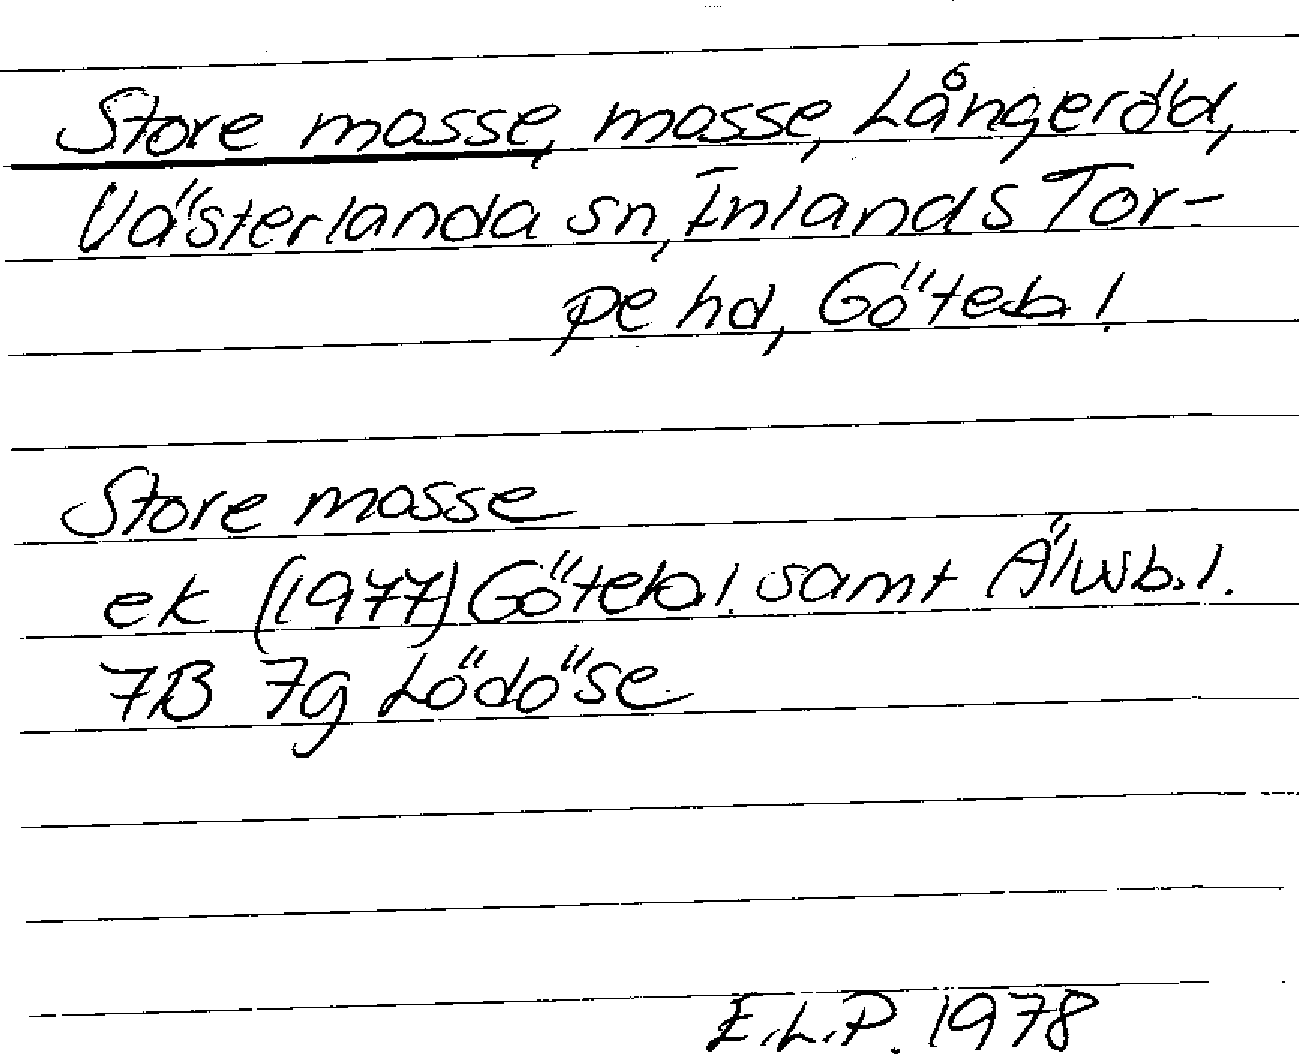 Store mosse, mosse, Långeröd,
Västerlanda sn, Inlands Tor-
pe hd, Göteb l.
Store mosse
ek (1977) Göteb. l. samt Älvsb. l.
7B 7g Lödöse
E.L.P. 1978